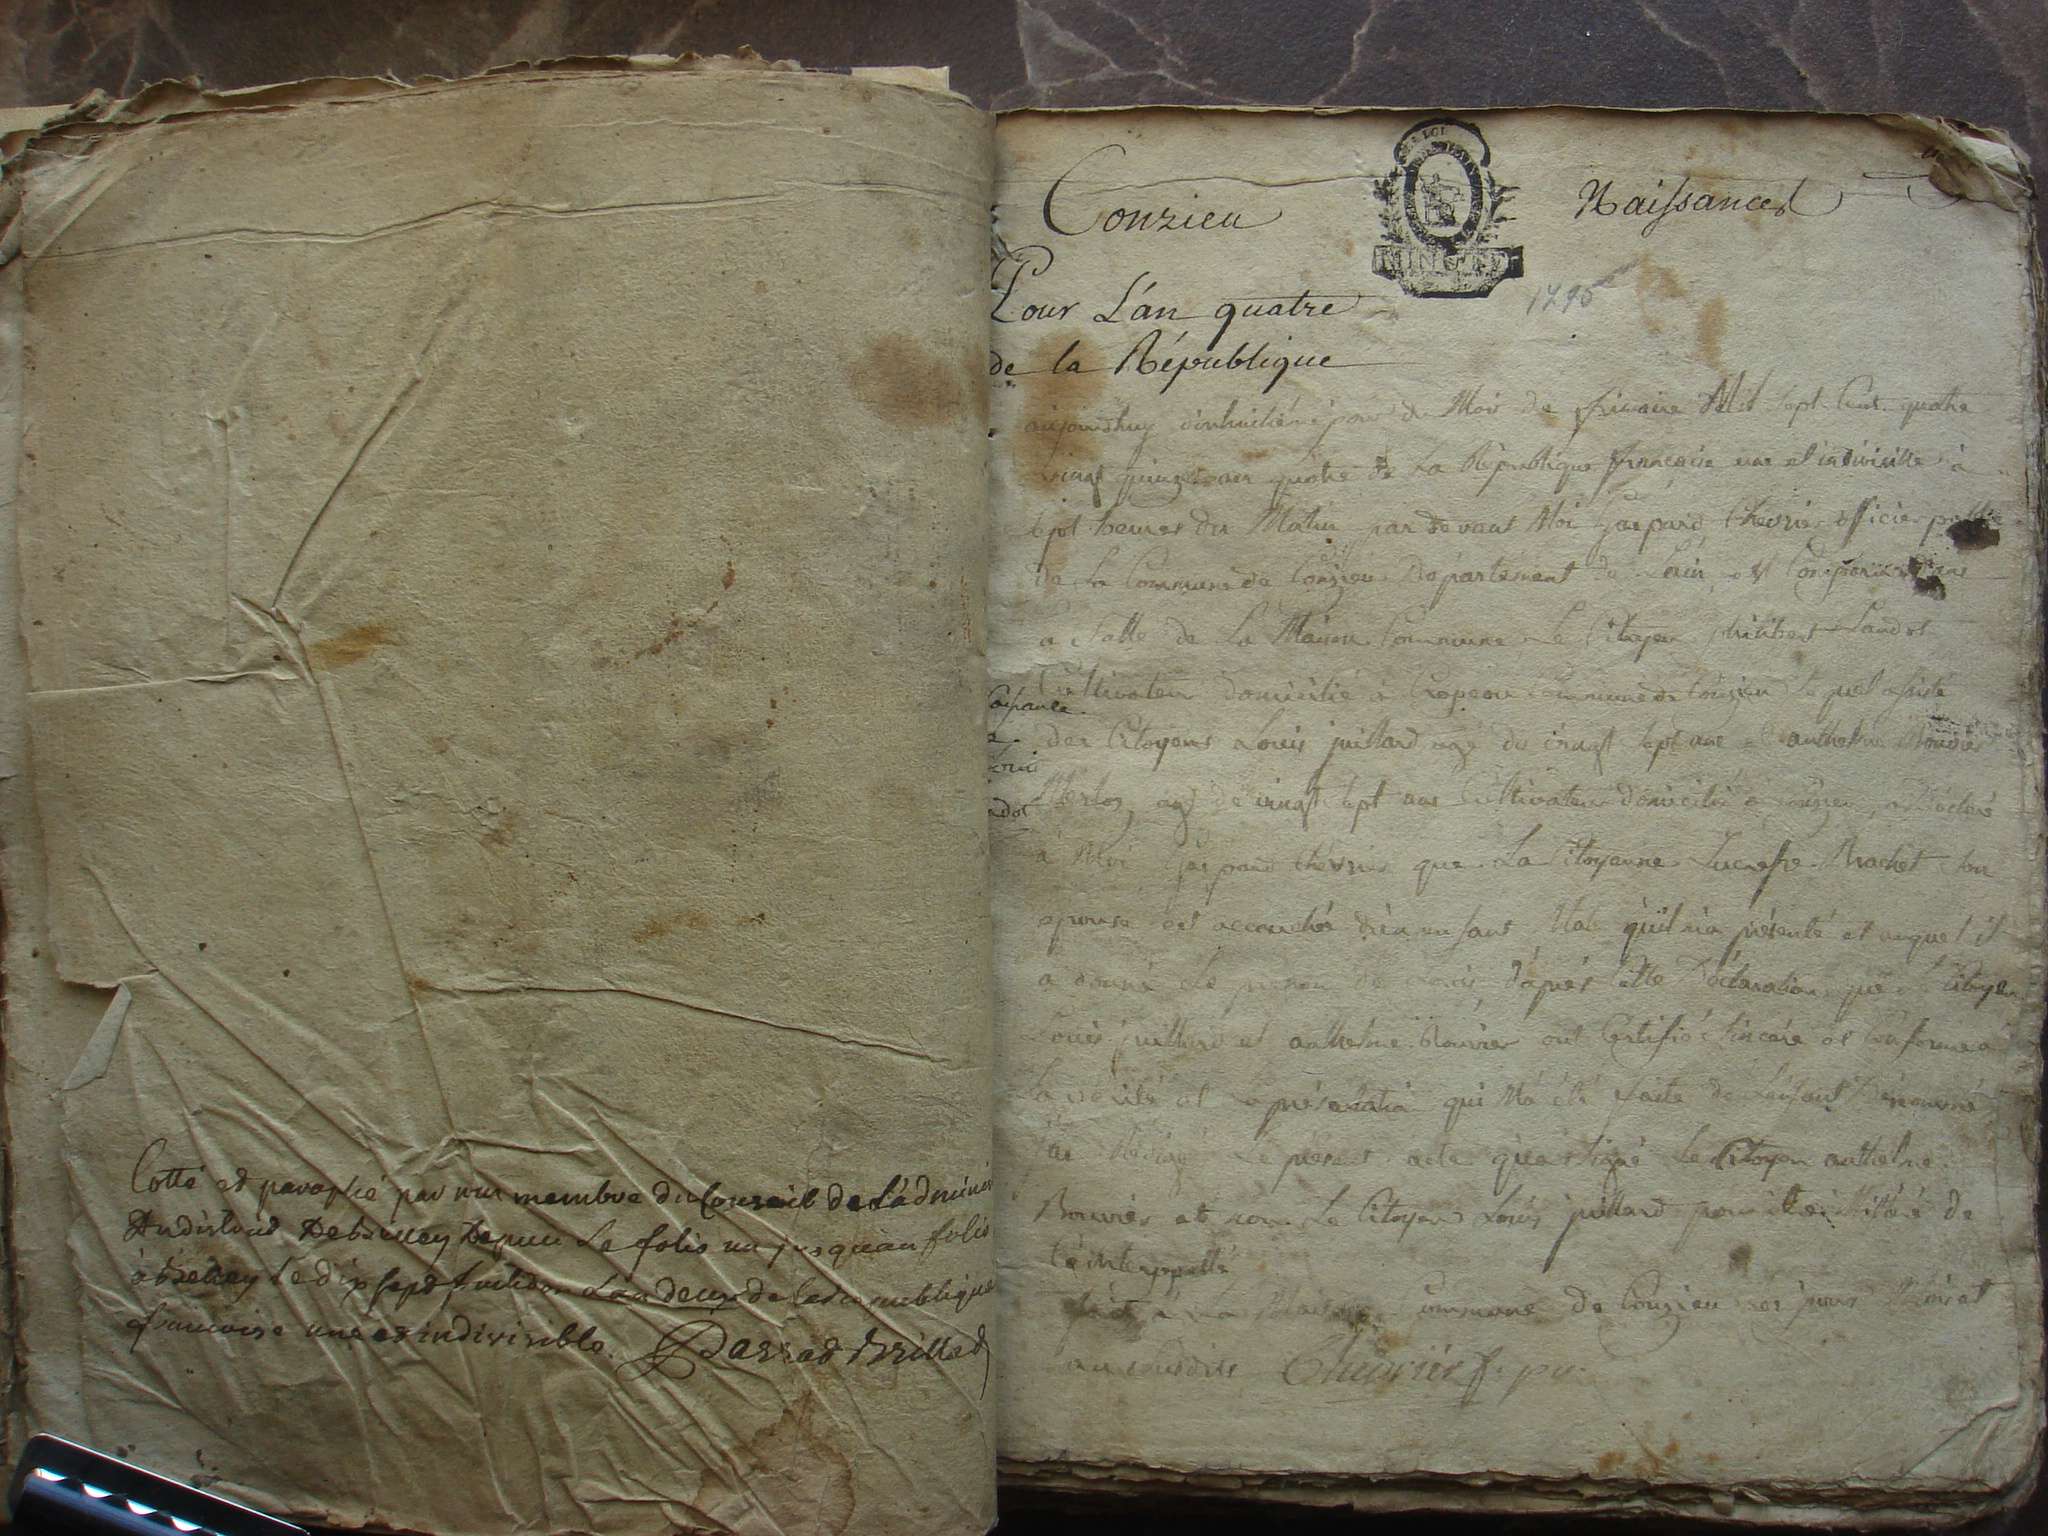 Cotté et paraphé par nous membre du Conseil de L'admini
Du district De belley Depuis Le folio un jusquau folio
à belley Le dix sept L'an deux de la republique
francoise une et indivisible. Brillat
Conzieu
Naissances
Pour L'an quatre
1795
de la République
aujourdhuy dixhuitième jour du Mois de frimaire Mil Sept Cent quatre
vingt quinze quatre de La République francaise une et indivisible à
sept heures du Matin par devant Moi Gaspard Chevrier officier public
de La Commune de Conzieu Département de Lain est
La Salle de La Maison Commune Le Citoyen philibert Landot
Cultivateur domicilié à Commune de Conzieu Lequel assisté
naissance
de
Louis
Landot
des Citoyens Louis juillard agé de vingt sept ans et anthelme Bouvier
agé de vingt sept ans Cultivateur domicilié a Conzieu a déclaré
à Moi Gaspard Chevrier que La Citoyenne Lucresse Brachet son
epouse est accouchée d'un enfant Mal qu'il m'a présenté et auquel il
a donné Le prenom de Louis, d'après cette Déclaration que Citoyen
Louis juillard et anthelme Bouvier ont Certifié Sincère et Conforme a
La vérité et La présentation qui M'a été faite de L'enfant Dénommé
J'ai Rédigé Le présent acte qu'a signé Le Citoyen anthelme
Bouvier et non Le Citoyen Louis juillard pour illitéré de
Ce interppellé
fait à La Maison Commune de Conzieu Les jours Mois et
an susdits Chevrier